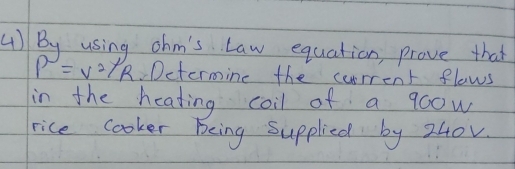 4) By using ohm's Law equation, prove that
P = V²/R. Determine the current flows
in the heating coil of a 900w
rice cooker being supplied by 240v.